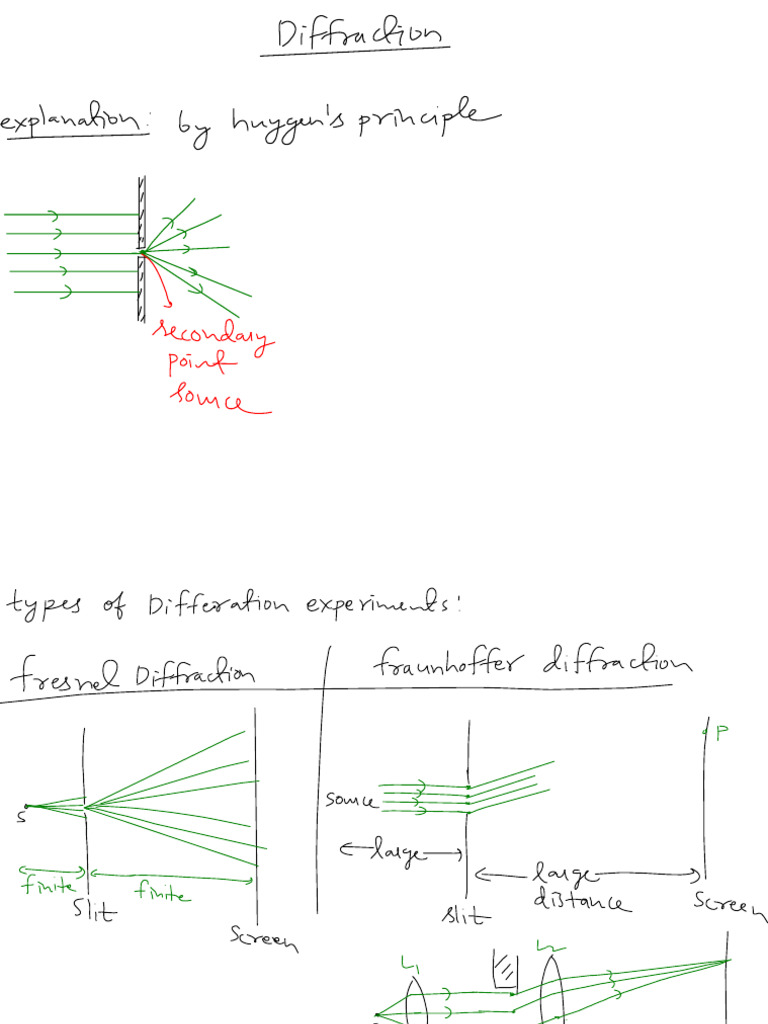 Diffraction
explanation: by huygen's principle
secondary
point
source
types of Differation experiments:
fresnel Diffraction
fraunhoffer diffraction
P
source
S
large
finite
finite
large
distance
slit
slit
screen
screen
L1
L2